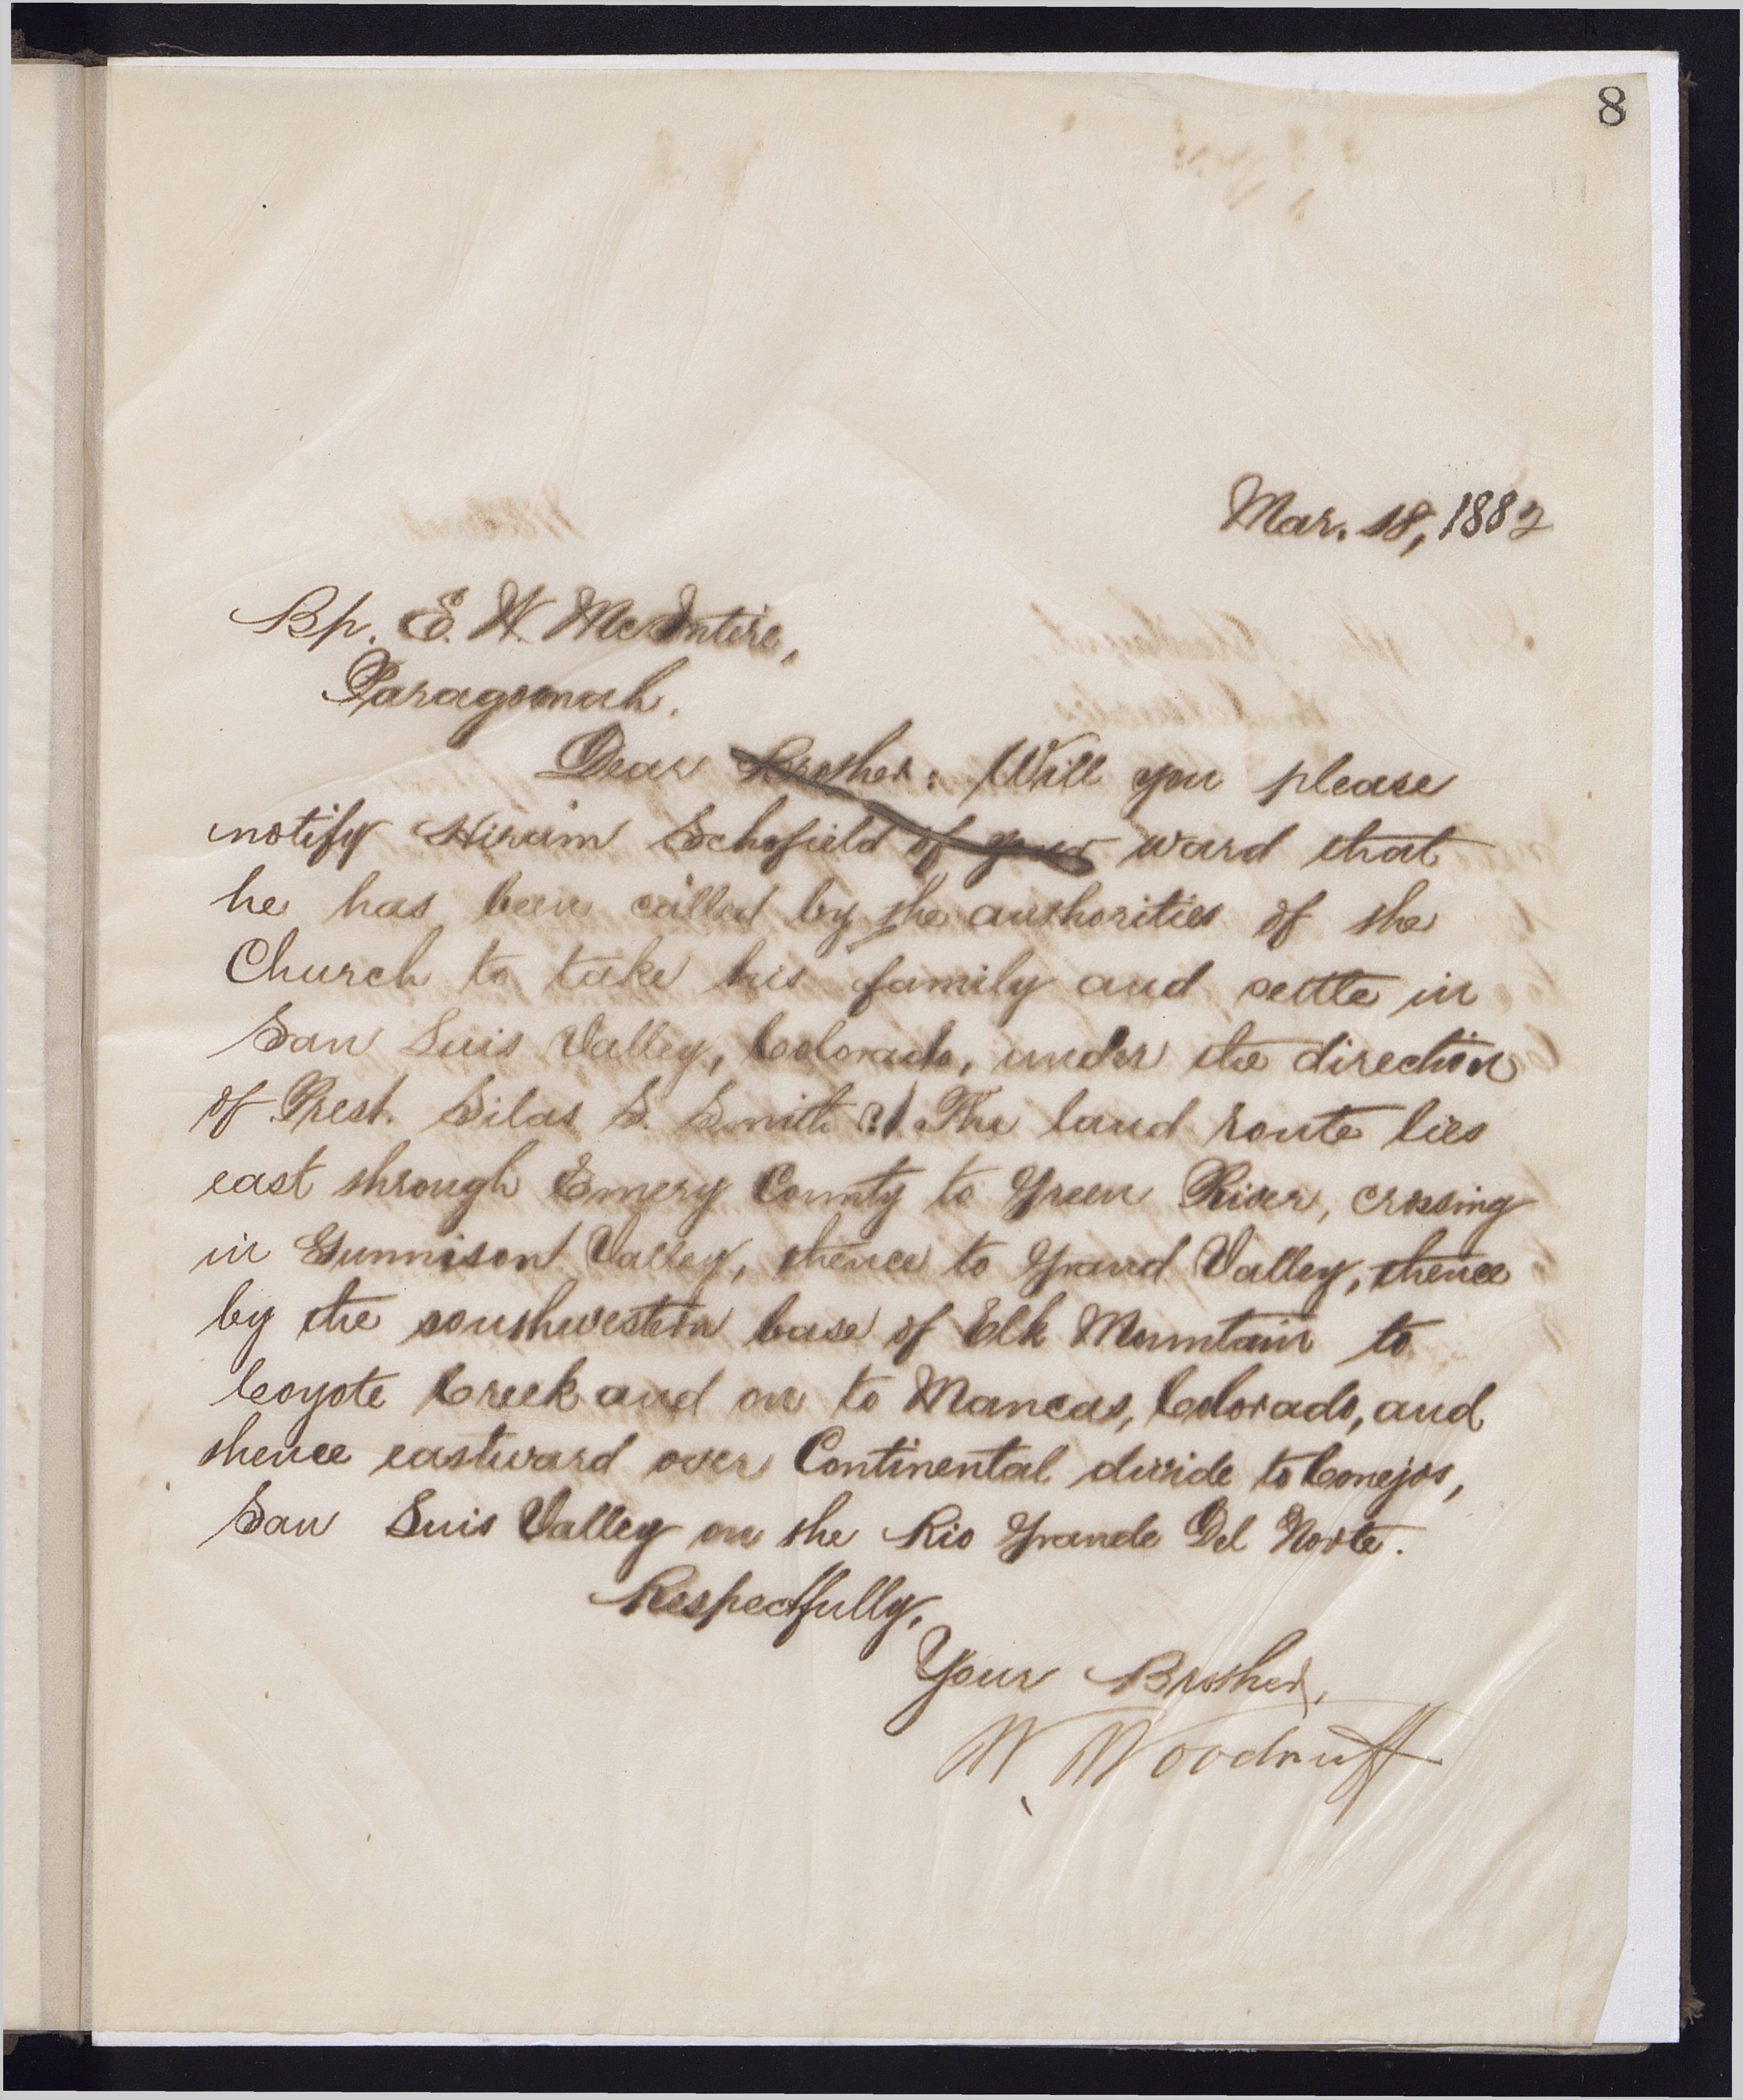 8
Mar. 18, 1882
Bp. E. W. McIntire,
Paragoonah.
Dear Brother: Will you please
notify Hiram Schofield of your ward that
he has been called by the authorities of the
Church to take his family and settle in
San Luis Valley, Colorado, under the direction
of Prest. Silas S. Smith. The land route lies
east through Emery County to Green River, crossing
in Gunnison Valley, thence to Grand Valley, thence
by the southwestern base of Elk Mountain to
Coyote Creek and on to Mancas, Colorado, and
thence eastward over Continental divide to Conejos,
San Luis Valley on the Rio Grande Del Norte.
Respectfully,
Your Brother,
W. Woodruff